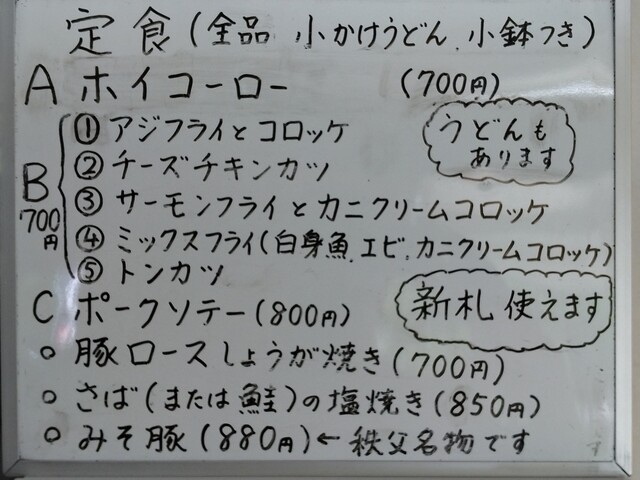 定食(全品 小かけうどん、小鉢つき)
A ホイコーロー (700円)
うどんも
あります
B
700
円
① アジフライとコロッケ
② チーズチキンカツ
③ サーモンフライとカニクリームコロッケ
④ ミックスフライ(白身魚、エビ、カニクリームコロッケ)
⑤ トンカツ
C ポークソテー(800円)
新札 使えます
○ 豚ロースしょうが焼き(700円)
○ さば(または鮭)の塩焼き(850円)
○ みそ豚(880円)←秩父名物です